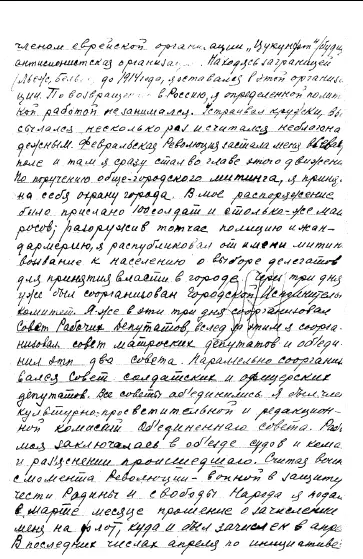 членом еврейской организации „Цукунфт“ (будущ
антисионистская организация. Находясь заграницей
до 1914 года, я оставался в этой организа-
ции. По возвращении в Россию, я определенной полит
кой работой не занимался. Устраивал кружки, вы
сылался несколько раз и считался неблагона
дежным. Февральская Революция застала меня в
поле и там я сразу стал во главе этого движения.
По поручению обще-городского митинга, я принял
на себя охрану города. В мое распоряжение
было прислано 100 солдат и столько-же мат
росов; разоружив тотчас полицию и жан-
дармерию, я распубликовал от имени митин
воззвание к населению о выборе делегатов
для принятия власти в городе. Через три дня
уже был сорганизован Городской Исполнительн
комитет. А же в эти три дня сорганизовал
Совет Рабочих депутатов, вслед за этим я сорга-
низовал совет матросских депутатов и объеди-
нил эти два совета. Параллельно сорганизо
вался Совет солдатских и офицерских
депутатов. Все советы объединились. Я был чле
культурно-просветительной и редакцион-
ной комисий объединенного совета. Раб
моя заключалась в объезде судов и кома
и раз'яснении происшедшего. Считая войн
с момента Революции - войной в защиту
чести Родины и свободы Народа я подал
в марте месяце прошение о зачислении
меня на флот, куда и был зачислен в апре
В последних числах апреля по инициативе